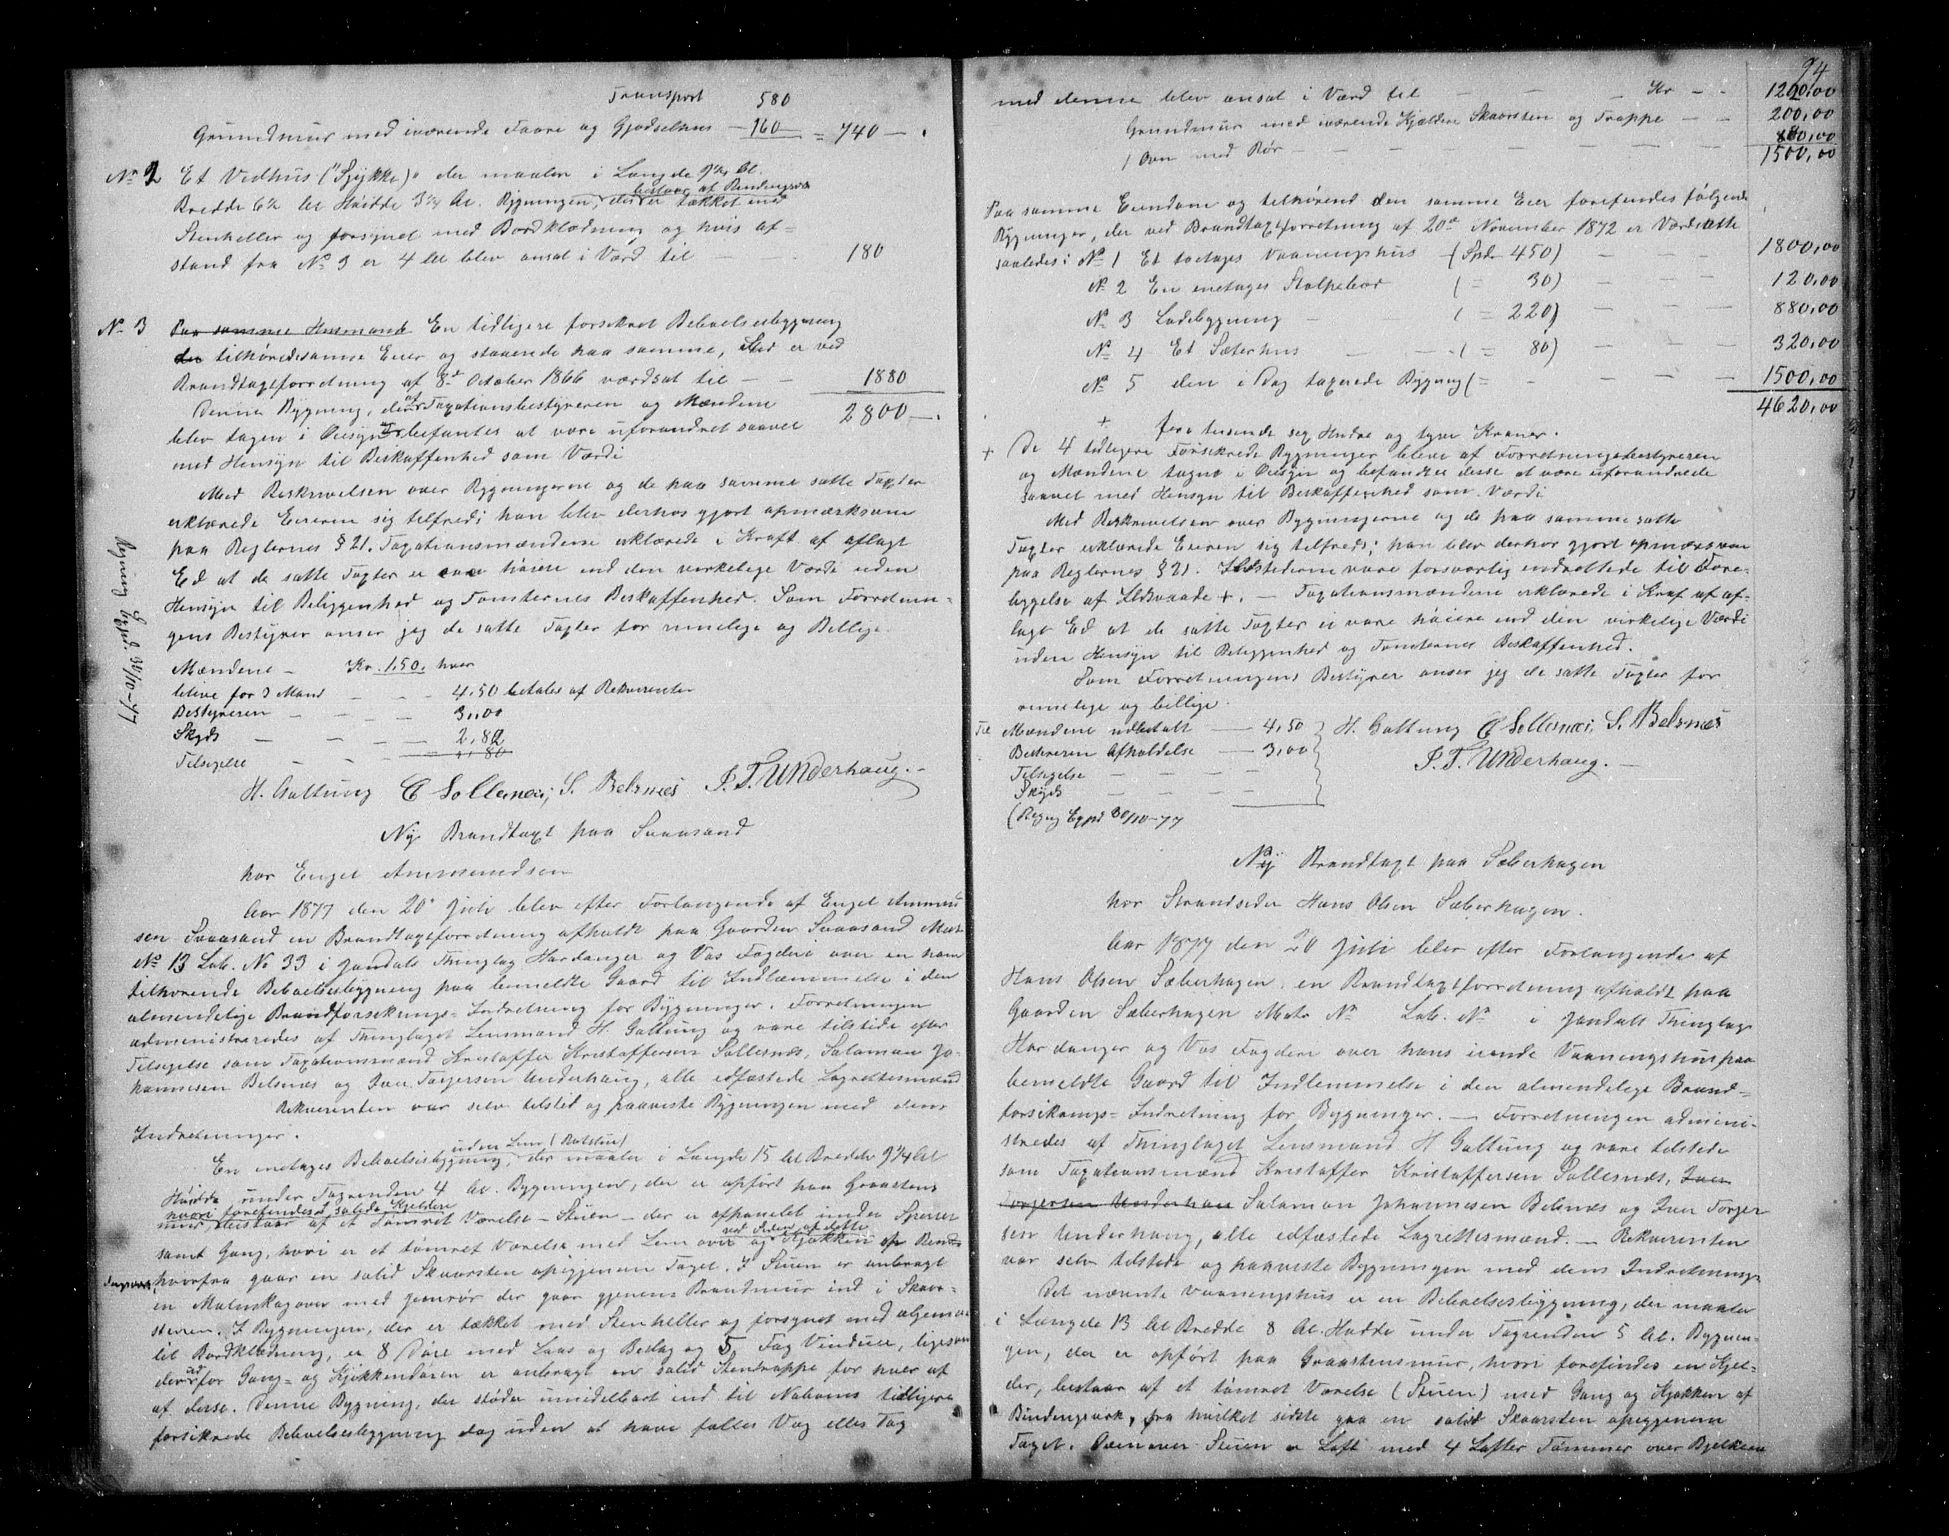 Transport 580
Grundmur med iværende Faare og Gjødselhus — 160 = 740 —
No 2 Et Vedhus ("Skykke") der maaler i Længde 9½ Al.
Bredde 6½ Al Høidde 3¾ Al. Bygningen, bestaar af Bindingsværk der er tækket med
Stenheller og forsynet med Bordklædning og hvis af=
stand fra No 3 er 4 Al blev ansat i Værd til — 180
No 3 Paa samme Husmands En tidligere forsikret Beboelsesbygning
der tilhørende samme Eier og staaende paa samme, Sted er ved
Brandtagtforretning af 8de October 1866 værdsat til — — 1880
Denne Bygning, der af Taxationsbestyreren og Mændene 2800 —
blev tagen i Øiesyn befantes at være uforandret saavel
med Hensyn til Beskaffenhed som Værdi
Med Beskrivelsen over Bygningerne og de paa samme satte Taxter
erklærede Eieren sig tilfreds; han blev derhos gjort opmærksom
paa Reglernes § 21. Taxationsmændene erklærede i Kraft af aflagt
Ed at de satte Taxter er høiere end den virkelige Værdi uden
Hensyn til Beliggenhed og Tomternes Beskaffenhed. Som Forretnin=
gens Bestyrer anser jeg de satte Taxter for rimelige og Billige.
Mændene — Kr. 1,50. hver
blive for 3 Mand — — 4.50 betales af Rekvirenten
Bestyreren — — — 3,00
Skyds — — — 2,82
Tilsigelse — — — 80
Regning Expd. 30/10-77
H. Galtung C Sollesnes, S. Belsnes I. T. Underhaug.
Ny Brandtaxt paa Svaasand
hos Engel Ammundsen
Aar 1877 den 20 Juli blev efter Forlangende af Engel Ammund
sen Svaasand en Brandtagtforretning afholdt paa Gaarden Svaasand Matr
No 13 Løb. No 33 i Jondals Thinglag Hardanger og Vos Fogderi over en ham
tilhørende Beboelsesbygning paa bemeldte Gaard til Indlemmelse i den
almendelige Brandforsikrings=Indretning for Bygninger. Forretningen
administreredes af Thinglaget Lensmand H. Galtung og vare tilstede efter
Tilsigelse som Taxationsmænd Kristaffer Kristaffersen Sollesnes, Salamon Jo=
hannesen Belsnes og Iver Torgersen Underhaug, alle edfæstede Lagrettesmænd
Rekvirenten var selv tilsted og paaviste Bygningen med dens
Indretninger.
En enetages Beboelsesbygning, uden Lem (Ratstue) der maaler i Længde 15 Al Bredde 9¼ Al
Høidde under Tagrenden 4 Al. Bygningen, der er opført paa Graastens
mur, hvori forefindes solide Kjeldere bestaar af et Tømret Værelse — Stuen — der er afpanelet under Sperrer
samt Gang, hvori er et tømret Værelse med Lem over og Kjøkken ved Siden af dette af Bind
ingsværk, hvorfra gaar en solid Skaarsten opigjenem Taget. I Stuen er anbragt
en Malmkagovn med Jernrør der gaar gjenem Brandmur ind i Skaar=
stenen. I Bygningen, der er tækket med Stenheller og forsynet med algjennem
lit Bordklædning, er 8 Døre med Laas og Beslag og 5 Fag Vinduer, ligesom
der udfor Gang= og Kjøkkendøren er anbragt en solid Stentrappe for hver af
af disse. Denne Bygning, der støder umidelbart ind til Naboens tidligere
forsikrede Beboelsesbygning dog uden at have fælles Væg eller Tag
94
med denne blev ansat i Værd til — — — Kr — — 1200,00
Grundmur med iværende Kjældere Skaarsten og Trappe — — 200,00
1 Ovn med Rør — — — — — — 100,00
1500,00
Paa samme Eiendom og tilhørend den samme Eier forefindes følgende
Bygninger, der ved Brandtagtforretning af 20de November 1872 er Værdsatte
saaledes: No 1 Et toetages Vaaningshus (Spd. 450) — — 1800,00
No 2 En enetages Stolpebod (= 30) — — 120,00
No 3 Ladebygning — (= 220) — 880,00
No 4 Et Sæterhus — — (= 80) — — 320,00
No 5 den i Dag taxerede Bygning (= — — — 1500,00
4620,00
+ fire tusende sex Hundre og tyve Kroner.
+ De 4 tidligere Forsikrede Bygninger bleve af Forretningsbestyreren
og Mændene tagne i Øiesyn og befandtes disse at være uforandrede
saavel med Hensyn til Beskaffenhed som Værdi
Med Beskrivelsen over Bygningerne og de paa samme satte
Taxter erklærede Eieren sig tilfreds; han blev derhos gjort opmærksom
paa Reglernes § 21. Ildstederne vare forsvarlig indrettede til Fore=
byggelse af Ildsvaade +. — Taxationsmændene erklærede i Kraf af af=
lagt Ed at de satte Taxter ei vare høiere end den virkelige Værdi
uden Hensyn til Beliggenhed og Tomternes Beskaffenhed.
Som Forretningens Bestyrer anser jeg de satte Taxter for
rimelige og billige.
Til Mændene udbetalt — 4,50 H. Galtung C Sollesnes, S. Belsnes
Bestyreren Afholdelse — 3,00 I. T. Underhaug. —
Tilsigelse — — —
Skyds — — —
(Regng Expd 30/10-77
Ny Brandtagt paa Sæberhagen
hos Strandsider Hans Olsen Sæberhagen.
Aar 1877 den 20 Juli blev efter Forlangende af
Hans Olsen Sæberhagen en Brandtagtforretning afholdt paa
Gaarden Sæberhagen Matr No Løb. No i Jondals Thinglag
Hardanger og Vos Fogderi over hans iende Vaaningshus paa
bemeldte Gaard til Indlemmelse i den almendelige Brand=
forsikrings=Indretning for Bygninger. — Forretningen admini=
stredes af Thinglaget Lensmand H Galtung og vare tilstede
som Taxationsmænd Kristaffer Kristaffersen Sollesnes, Iver
Torgersen Underhau Salamon Johannesen Belsnes og Iver Torger
sen Underhaug, alle edfæstede Lagrettesmænd. — Rekvirenten
var selv tilstede og paaviste Bygningen med dens Indretninger
Det nævnte Vaaningshus er en Beboelsesbygning, der maaler
i Længde 13 Al Bredde 8 Al. Hødde under Tagrenden 5 Al. Bygnin=
gen, der er opført paa Graastensmur, hvori forefindes en Kjel=
der, bestaar af et tømret Værelse (Stuen) med Gang og Kjøkken af
Bindingsværk, fra hvilket sidste gaa en solid Skaarsten opigjenem
Taget. Ovenover Stuen er Loft med 4 Lofter Tømmer over Bjelkerne